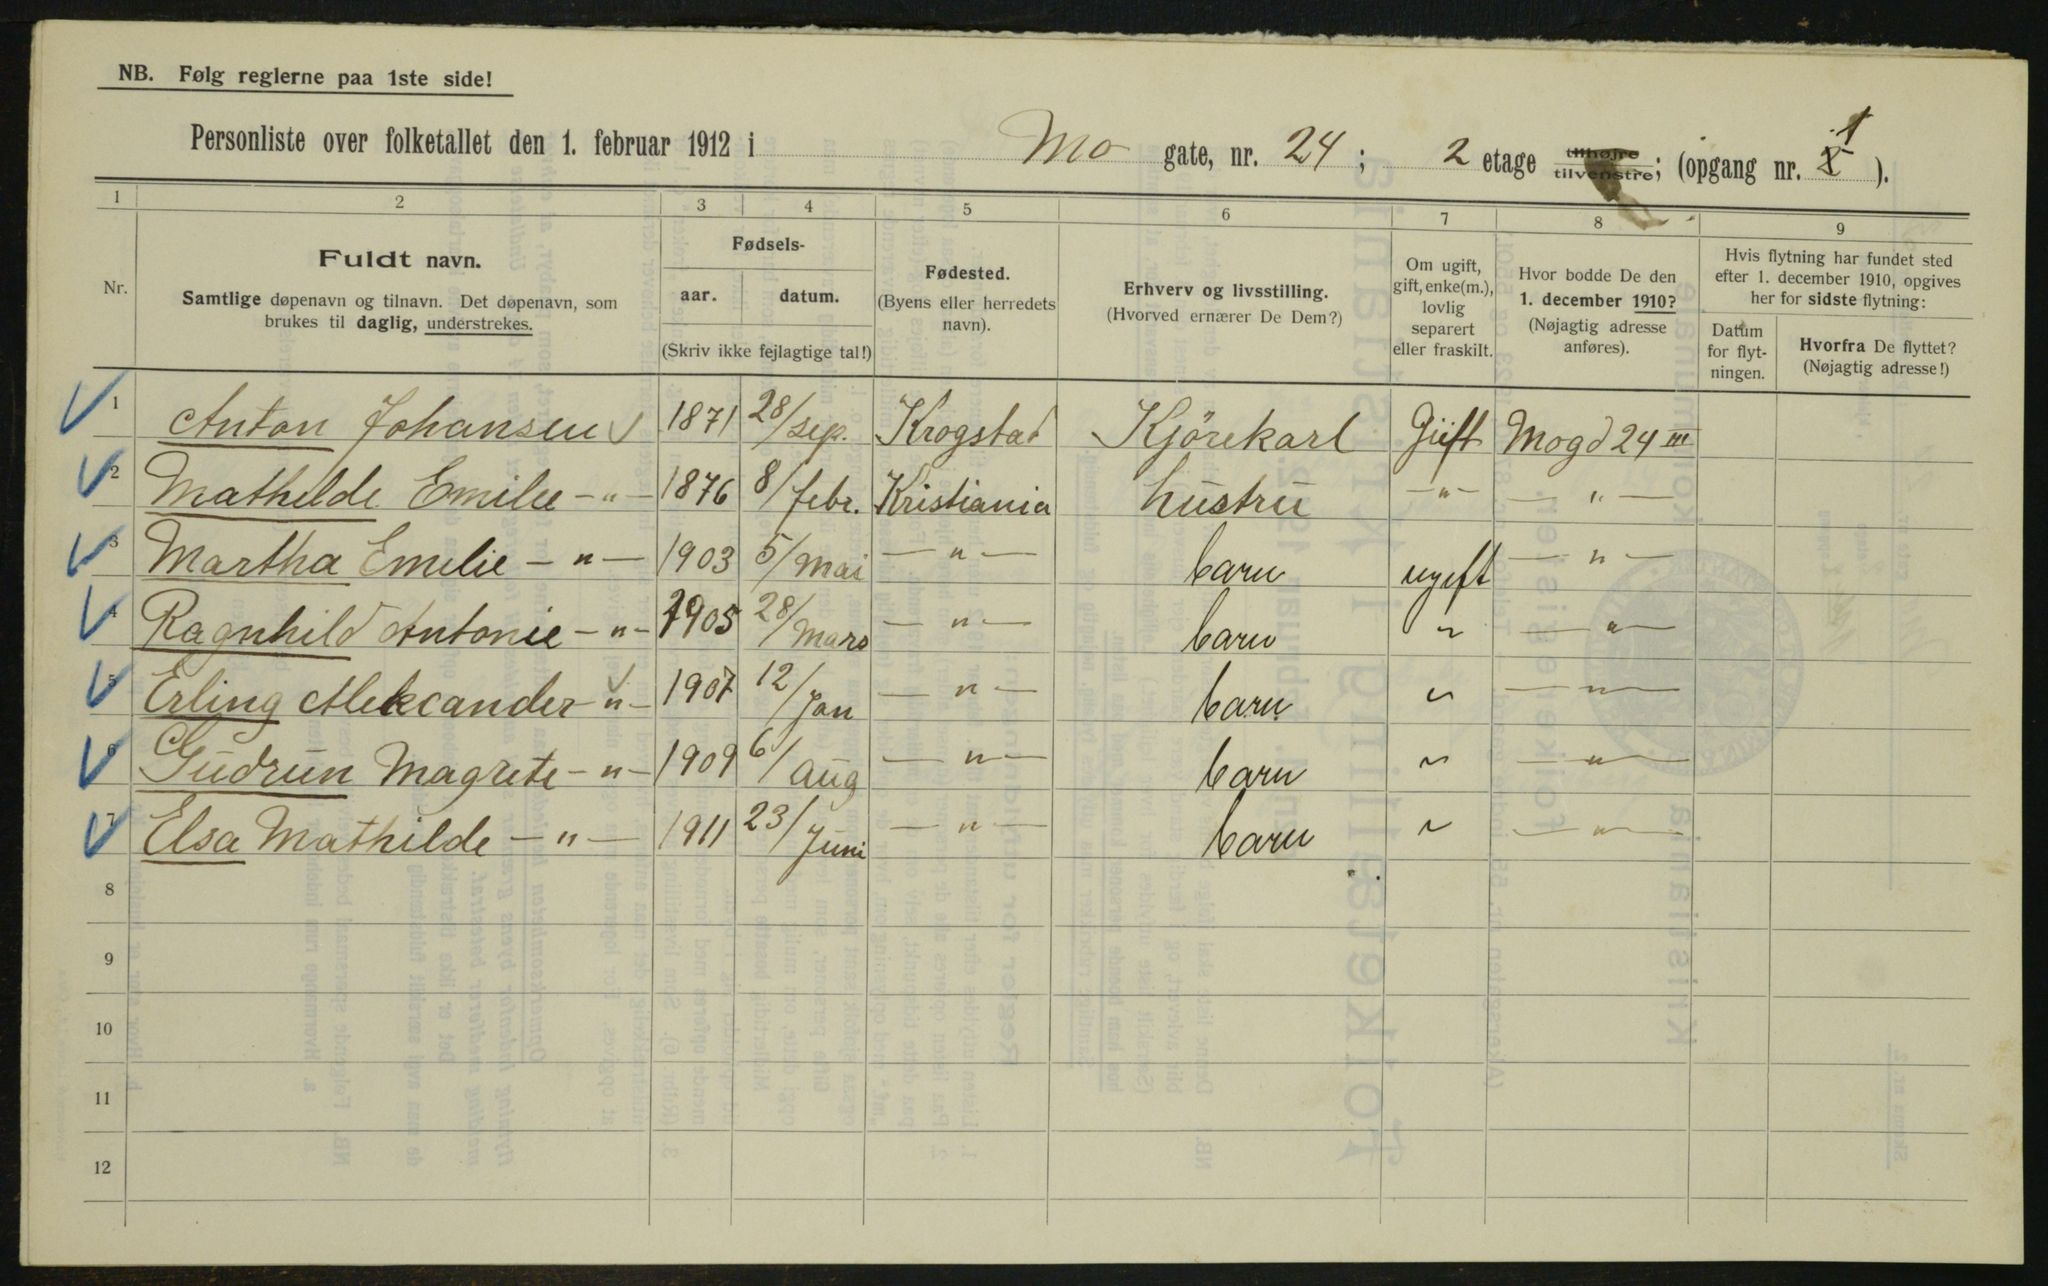 NB. Følg reglerne paa 1ste side!
Personliste over folketallet den 1. februar 1912 i Mo gate, nr. 24 ; 2 etage tilhøjre tilvenstre; (opgang nr. 1 ).
1 2 3 4 5 6 7 8 9
Nr.
Fuldt navn.
Samtlige døpenavn og tilnavn. Det døpenavn, som
brukes til daglig, understrekes.
Fødsels-
aar. datum.
(Skriv ikke fejlagtige tal!)
Fødested.
(Byens eller herredets
navn).
Erhverv og livsstilling.
(Hvorved ernærer De Dem?)
Om ugift,
gift, enke(m.),
lovlig
separert
eller fraskilt.
Hvor bodde De den
1. december 1910?
(Nøjagtig adresse
anføres).
Hvis flytning har fundet sted
efter 1. december 1910, opgives
her for sidste flytning:
Datum
for flyt-
ningen.
Hvorfra De flyttet?
(Nøjagtig adresse!)
1 Anton Johansen 1871 28/sep. Krogstad Kjörekarl Gift Mogd 24 III
2 Mathilde Emilie -"- 1876 8/febr. Kristiania hustru -"- -"-
3 Martha Emelie -"- 1903 5/mai -"- barn ugift -"-
4 Ragnhild Antonie -"- 1905 28/mars -"- barn " -"-
5 Erling Alekcander -"- 1907 12/Jan -"- barn " -"-
6 Gudrun Magrete -"- 1909 6/aug -"- barn " -"-
7 Elsa Mathilde -"- 1911 23/Juni -"- barn " -"-
8
9
10
11
12